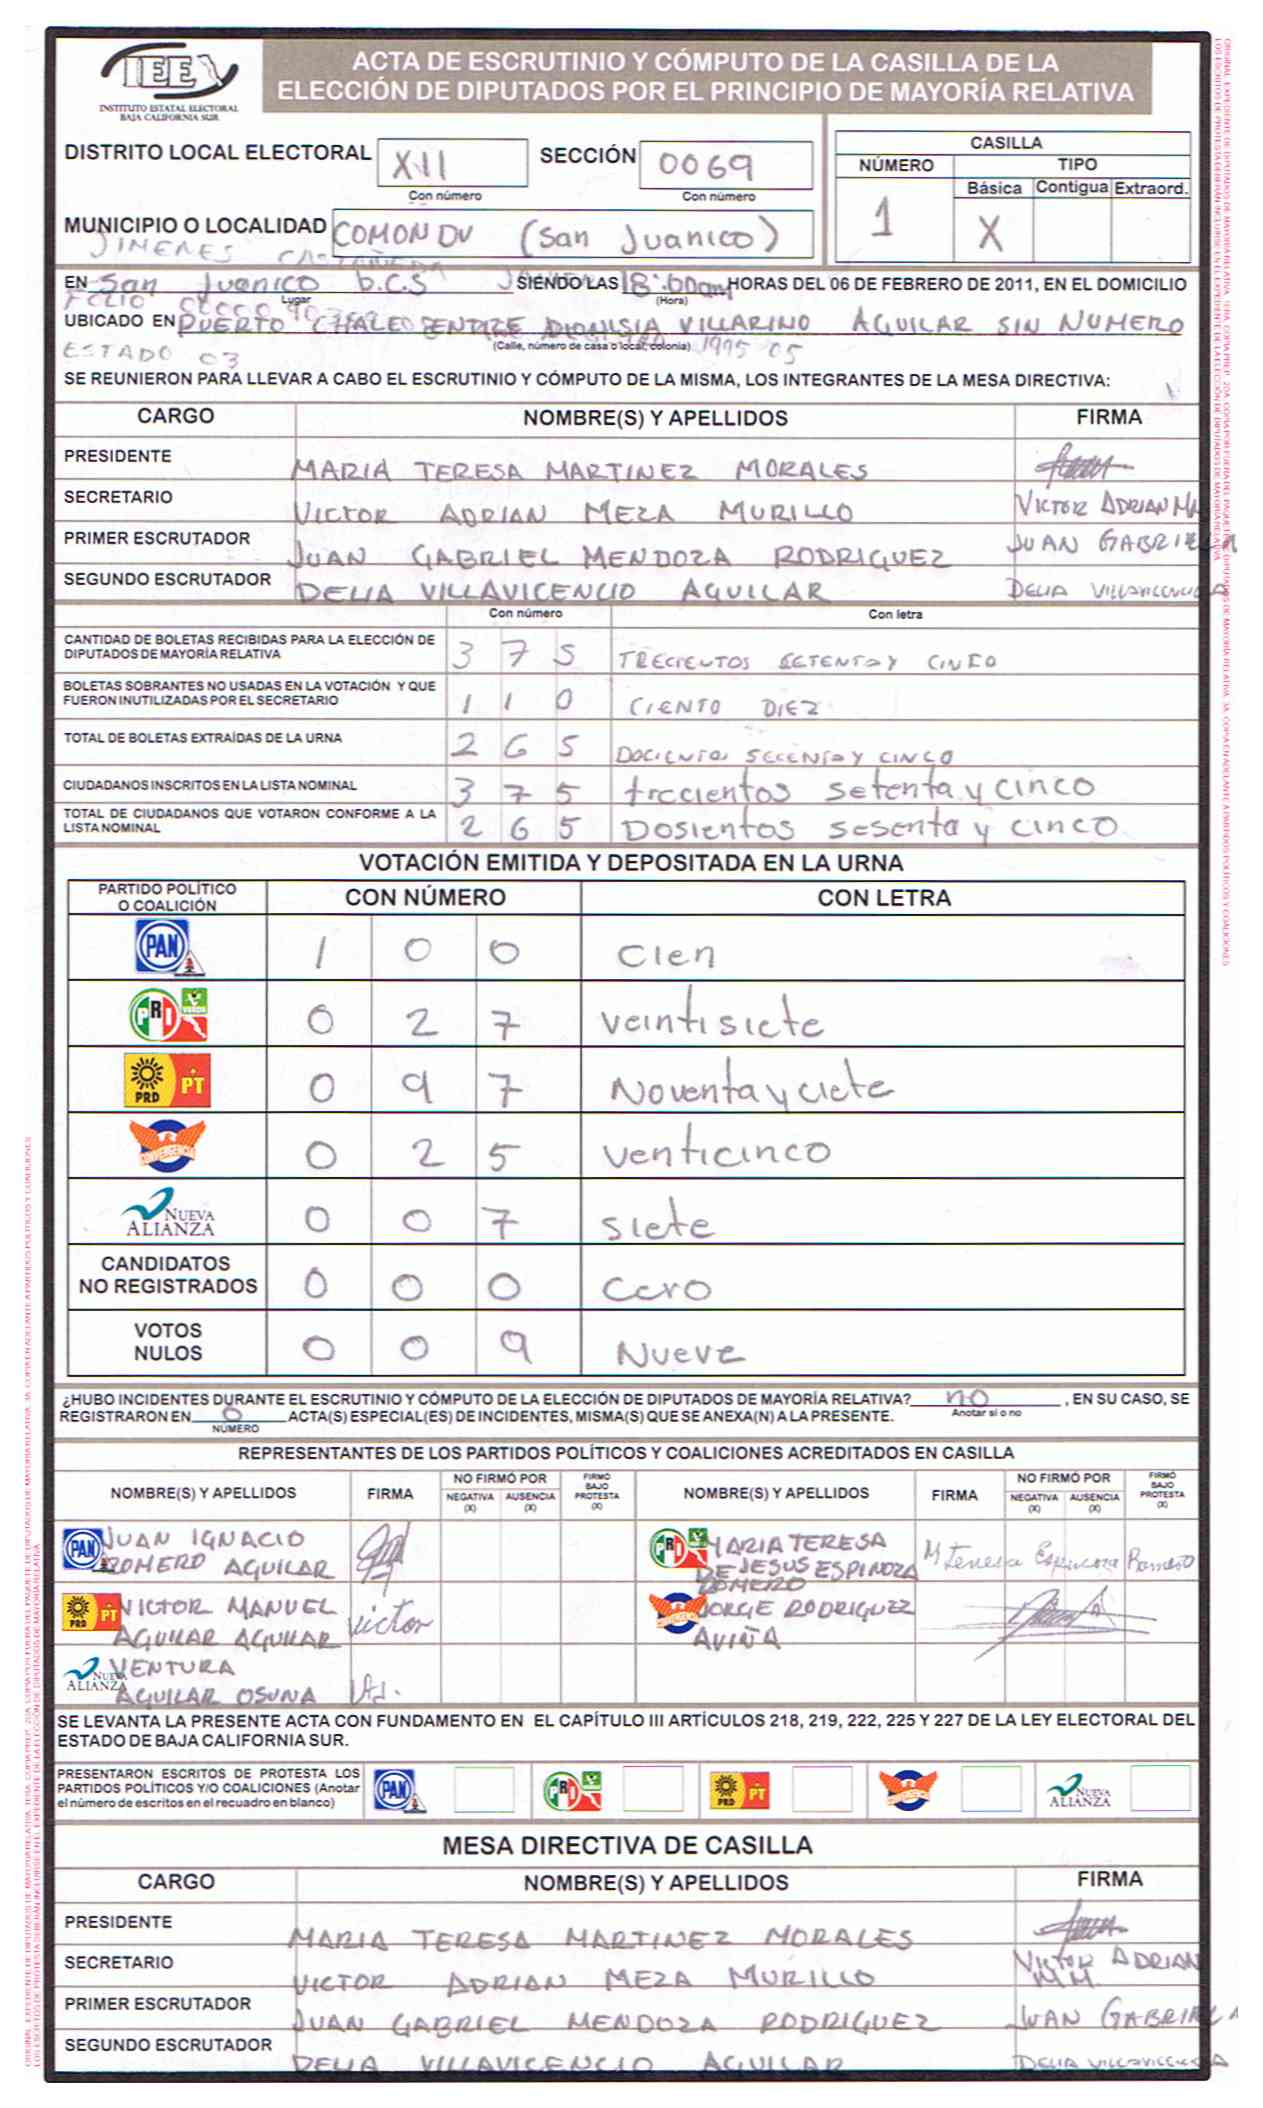 IEE
INSTITUTO ESTATAL ELECTORAL
BAJA CALIFORNIA SUR
ACTA DE ESCRUTINIO Y CÓMPUTO DE LA CASILLA DE LA
ELECCIÓN DE DIPUTADOS POR EL PRINCIPIO DE MAYORÍA RELATIVA
DISTRITO LOCAL ELECTORAL XII SECCIÓN 0069
Con número Con número
CASILLA
NÚMERO TIPO
Básica Contigua Extraord.
1 X
MUNICIPIO O LOCALIDAD COMONDU (San Juanico)
JIMENES CASTAÑEDA
EN San Juanico B.C.S SIENDO LAS 18:00am HORAS DEL 06 DE FEBRERO DE 2011, EN EL DOMICILIO
Lugar (Hora)
FOLIO
UBICADO EN PUERTO CHALE ENTRE DIONISIA VILLARINO AGUILAR SIN NUMERO
(Calle, número de casa o local, colonia) 1995 05
ESTADO 03
SE REUNIERON PARA LLEVAR A CABO EL ESCRUTINIO Y CÓMPUTO DE LA MISMA, LOS INTEGRANTES DE LA MESA DIRECTIVA:
CARGO NOMBRE(S) Y APELLIDOS FIRMA
PRESIDENTE MARIA TERESA MARTINEZ MORALES
SECRETARIO VICTOR ADRIAN MEZA MURILLO VICTOR ADRIAN MM
PRIMER ESCRUTADOR JUAN GABRIEL MENDOZA RODRIGUEZ JUAN GABRIEL
SEGUNDO ESCRUTADOR DELIA VILLAVICENCIO AGUILAR DELIA VILLAVICENCIO A
Con número Con letra
CANTIDAD DE BOLETAS RECIBIDAS PARA LA ELECCIÓN DE
DIPUTADOS DE MAYORÍA RELATIVA 3 7 5 TRECIENTOS SETENTA Y CINCO
BOLETAS SOBRANTES NO USADAS EN LA VOTACIÓN Y QUE
FUERON INUTILIZADAS POR EL SECRETARIO 1 1 0 CIENTO DIEZ
TOTAL DE BOLETAS EXTRAÍDAS DE LA URNA 2 6 5 DOCIENTOS SECENTA Y CINCO
CIUDADANOS INSCRITOS EN LA LISTA NOMINAL 3 7 5 trecientos setenta y cinco
TOTAL DE CIUDADANOS QUE VOTARON CONFORME A LA
LISTA NOMINAL 2 6 5 Dosientos sesenta y cinco
VOTACIÓN EMITIDA Y DEPOSITADA EN LA URNA
PARTIDO POLÍTICO
O COALICIÓN CON NÚMERO CON LETRA
PAN 1 0 0 Cien
PRI VERDE 0 2 7 veintisiete
PRD PT 0 9 7 Noventa y ciete
CONVERGENCIA 0 2 5 venticinco
NUEVA ALIANZA 0 0 7 siete
CANDIDATOS
NO REGISTRADOS 0 0 0 Cero
VOTOS
NULOS 0 0 9 Nueve
¿HUBO INCIDENTES DURANTE EL ESCRUTINIO Y CÓMPUTO DE LA ELECCIÓN DE DIPUTADOS DE MAYORÍA RELATIVA? no , EN SU CASO, SE
Anotar sí o no
REGISTRARON EN 0 ACTA(S) ESPECIAL(ES) DE INCIDENTES, MISMA(S) QUE SE ANEXA(N) A LA PRESENTE.
NÚMERO
REPRESENTANTES DE LOS PARTIDOS POLÍTICOS Y COALICIONES ACREDITADOS EN CASILLA
NOMBRE(S) Y APELLIDOS FIRMA NO FIRMÓ POR NEGATIVA (X) AUSENCIA (X) FIRMÓ BAJO PROTESTA (X) NOMBRE(S) Y APELLIDOS FIRMA NO FIRMÓ POR NEGATIVA (X) AUSENCIA (X) FIRMÓ BAJO PROTESTA (X)
PAN JUAN IGNACIO
ROMERO AGUILAR
PRI MARIA TERESA
DE JESUS ESPINOZA
ROMERO M Teresa Espinoza Romero
PRD PT VICTOR MANUEL
AGUILAR AGUILAR victor
CONVERGENCIA JORGE RODRIGUEZ
AVIÑA
NUEVA ALIANZA VENTURA
AGUILAR OSUNA
SE LEVANTA LA PRESENTE ACTA CON FUNDAMENTO EN EL CAPÍTULO III ARTÍCULOS 218, 219, 222, 225 Y 227 DE LA LEY ELECTORAL DEL
ESTADO DE BAJA CALIFORNIA SUR.
PRESENTARON ESCRITOS DE PROTESTA LOS
PARTIDOS POLÍTICOS Y/O COALICIONES (Anotar
el número de escritos en el recuadro en blanco) PAN PRI PRD PT CONVERGENCIA NUEVA ALIANZA
MESA DIRECTIVA DE CASILLA
CARGO NOMBRE(S) Y APELLIDOS FIRMA
PRESIDENTE MARIA TERESA MARTINEZ MORALES
SECRETARIO VICTOR ADRIAN MEZA MURILLO VICTOR ADRIAN
M.M.
PRIMER ESCRUTADOR JUAN GABRIEL MENDOZA RODRIGUEZ JUAN GABRIEL
SEGUNDO ESCRUTADOR DELIA VILLAVICENCIO AGUILAR DELIA VILLAVICENCIO A